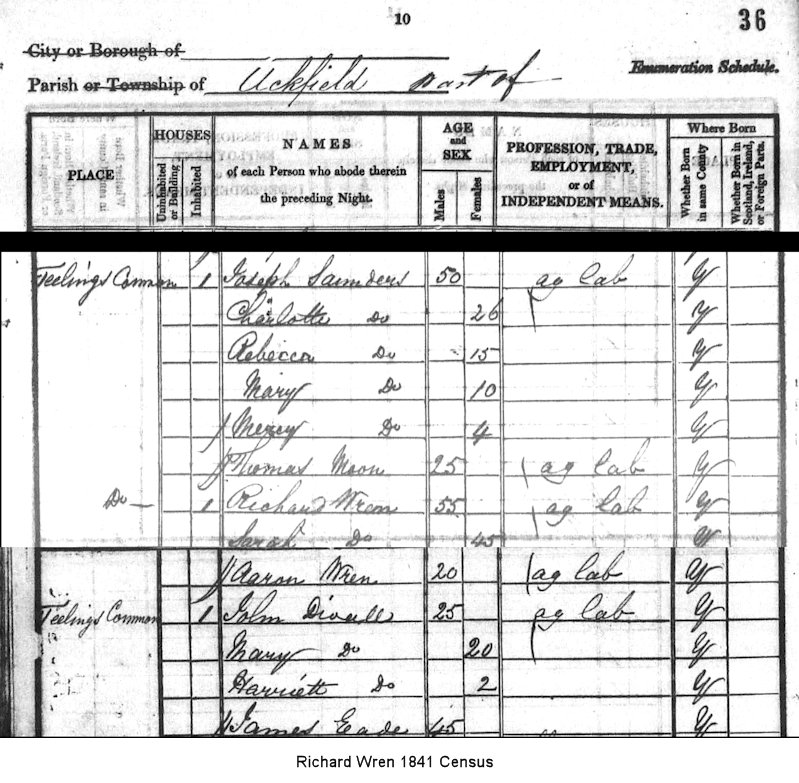 10
36
City or Borough of
Parish or Township of Uckfield part of
Enumeration Schedule.
PLACE
HOUSES
Uninhabited or Building
Inhabited
NAMES
of each Person who abode therein
the preceding Night.
AGE and SEX
Males
Females
PROFESSION, TRADE,
EMPLOYMENT,
or of
INDEPENDENT MEANS.
Where Born
Whether Born in same County
Whether Born in Scotland, Ireland, or Foreign Parts.
Teelings Common 1 Joseph Saunders 50 ag lab Y
Charlotte Do 26 Y
Rebecca Do 15 Y
Mary Do 10 Y
Mercy Do 4 Y
Thomas Moon 25 ag lab Y
Do 1 Richard Wren 55 ag lab Y
Sarah Do 45 Y
Aaron Wren 20 ag lab Y
Teelings Common 1 John Divall 25 ag lab Y
Mary Do 20 Y
Harriett Do 2 Y
James Eade 45 Y
Richard Wren 1841 Census